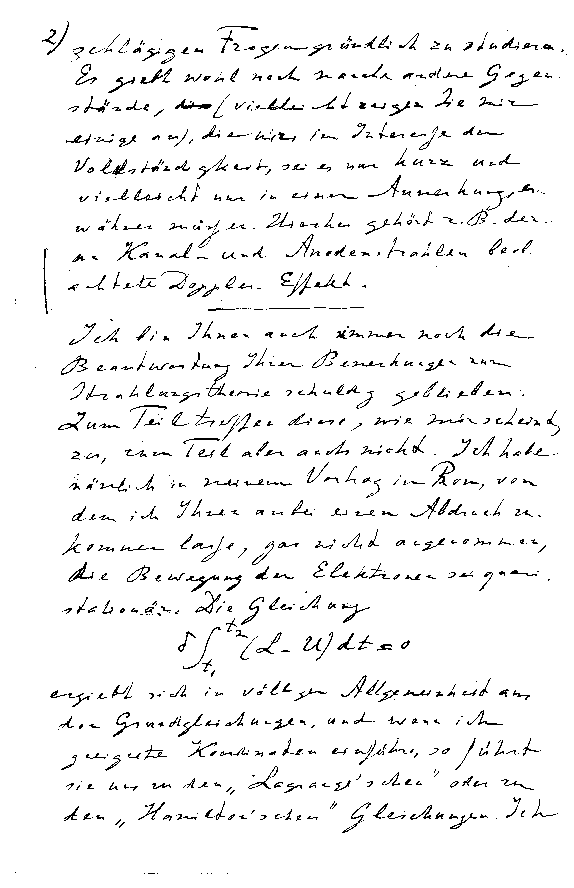 2)
schlägigen Fragen gründlich zu studieren.
Es giebt wohl noch manche andere Gegen-
stände, die (vielleicht zeigen Sie mir
einige an), die wir im Interesse der
Vollständigkeit, sei es nur kurz und
vielleicht nur in einer Anmerkung, er-
währen müssen. Hierher gehört z. B. der
an Kanal- und Anodenstrahlen beob-
achtete Doppler-Effekt.
Ich bin Ihnen auch immer noch die
Beantwortung Ihrer Bemerkungen zur
Strahlungstheorie schuldig geblieben.
Zum Teil treffen diese, wie mir scheint,
zu, zum Teil aber auch nicht. Ich habe
nämlich in meinem Vortrag in Rom, von
dem ich Ihnen anbei einen Abdruck zu-
kommen lasse, gar nicht angenommen,
die Bewegung der Elektronen sei quasi-
stationär. Die Gleichung
δ∫ₜ₁ᵗ² (L - U) dt = 0
ergiebt sich in völliger Allgemeinheit aus
den Grundgleichungen, und wenn ich
geeignete Koordinaten einführe, so führt
sie uns zu den „Lagrange'schen" oder zu
den „Hamilton'schen" Gleichungen. Ich